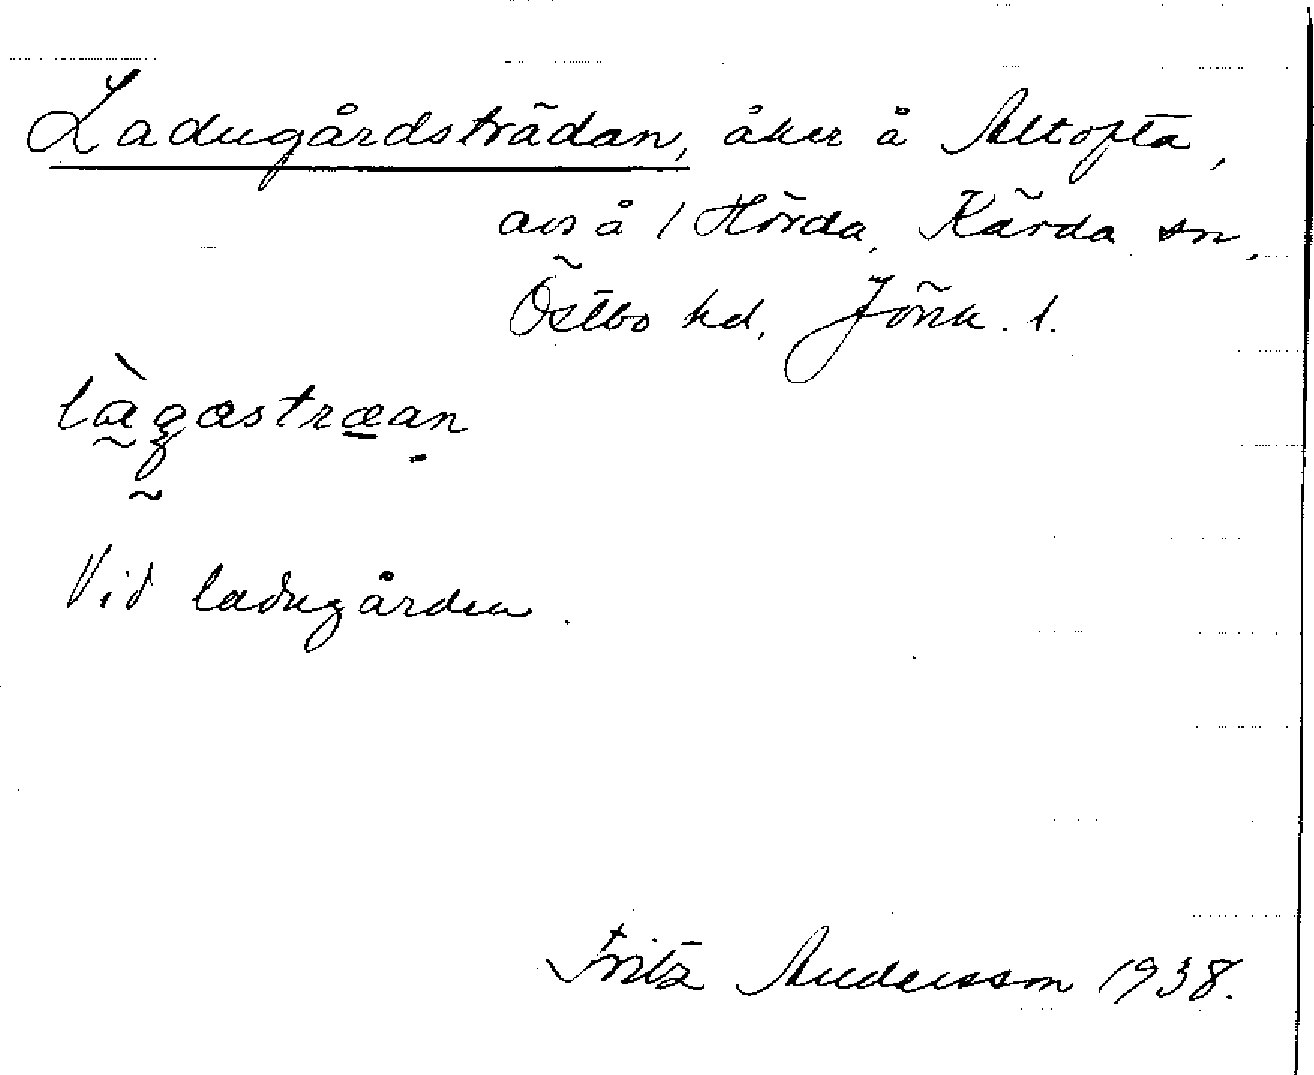 Ladugårdsträdan, åker å Altofta,
avs å 1 Hörda, Kärda sn,
Östbo hd, Jönk. l.
làgastræan
Vid ladugården.
Fritz Andersson 1938.